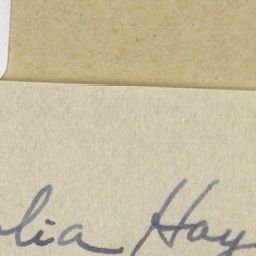 lia Hay